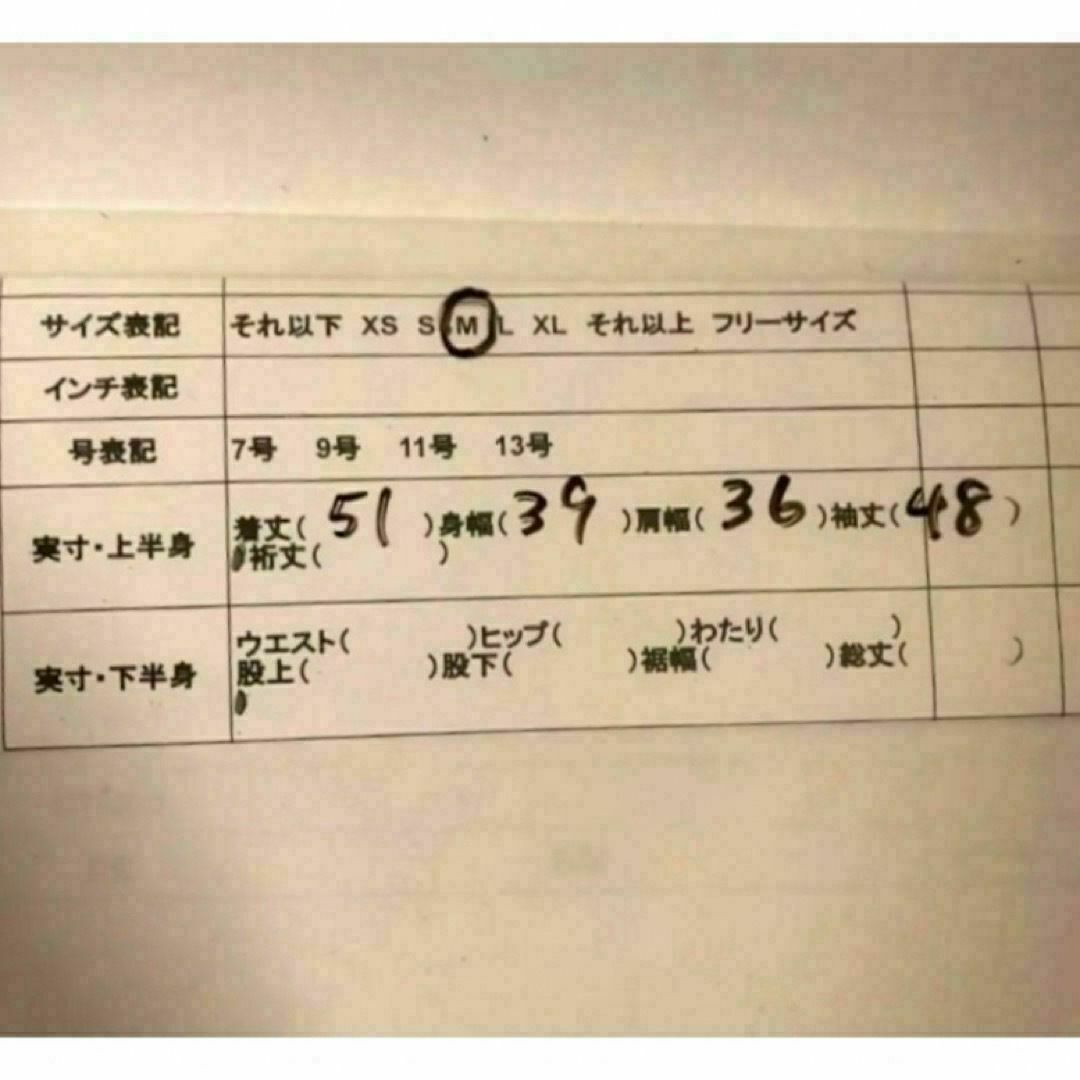 サイズ表記 それ以下 XS S M L XL それ以上 フリーサイズ
インチ表記
号表記 7号 9号 11号 13号
実寸・上半身 着丈( 51 )身幅( 39 )肩幅( 36 )袖丈( 48 )
裄丈( )
実寸・下半身 ウエスト( )ヒップ( )わたり( )
股上( )股下( )裾幅( )総丈( )